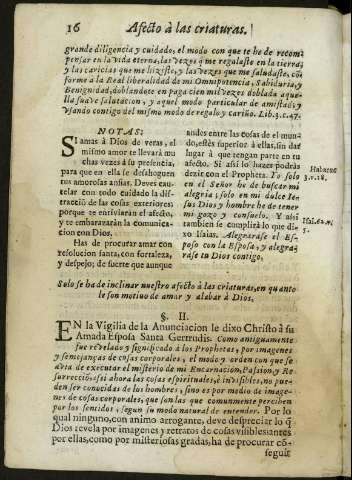 16 Afecto à las criaturas.
grande diligencia y cuidado, el modo con que te he de recom-
pensar en la vida eterna, las vezes q̃ me regalaste en la tierra,
y las caricias que me hiziste, y las vezes que me saludaste, cõ-
forme a la Real liberalidad de mi Omnipotencia, Sabiduria, y
Benignidad, doblandote en paga cien mil vezes doblada aque-
lla suave salutacion, y aquel modo particular de amistad, y
usando contigo del mismo modo de regalo, y cariño. Lib. 3. c. 47.
NOTAS:
SI amas à Dios de veras, el
mismo amor te llevarà mu
chas vezes à su presencia,
para que en ella se desahoguen
tus amorosas ansias. Deves cau-
telar con todo cuidado la dis-
tracciõ de las cosas exteriores;
porque te entiviaràn el afecto,
y te embaraçaràn la comuni-
cacion con Dios.
Has de procurar amar con
resolucion santa, con fortaleza,
y despejo; de suerte que aunque
andes entre las cosas de el mun-
do, estès superior à ellas, sin dar
lugar à que tengan parte en tu
afecto. Si asi lo hazes podràs
dezir con el Propheta. Yo solo
en el Señor he de buscar mi
alegria; solo en mi dulce Ie-
sus Dios y hombre he de tener
mi gozo y consuelo. Y asi
tambien se cumplirà lo que di-
xo Isaias. Alegrarase el Es-
poso con la Esposa, y alegra-
rase tu Dios contigo.
Habacuc
3. v. 18.
Isai. 62. v.
5.
Solo se ha de inclinar nuestro afecto à las criaturas, en quanto
le son motivo de amar y alabar à Dios.
§. II.
EN la Vigilia de la Anunciacion le dixo Christo à su
Amada Esposa Santa Gertrudis. Como antiguamente
fue revelado y significado à los Prophetas, por imagenes
y semejanças de cosas corporales, el modo y orden con que se
avia de executar el misterio de mi Encarnacion, Pasion, y Re
surrecciõ; asi ahora las cosas espirituales, è invisibles, no pue-
den ser conocidas de los hombres, sino es por medio de image-
nes de cosas corporales, que son las que comunmente perciben
por los sentidos, segun su modo natural de entender. Por lo
qual ninguno, con animo arrogante, deve despreciar lo q̃
Dios revela por imagenes y retratos de cosas visibles; antes
por ellas, como por misteriosas gradas, ha de procurar cõ-
seguir